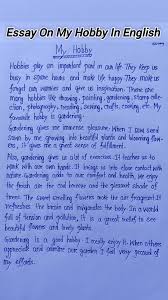 Essay On My Hobby In English
My Hobby
Hobbies play an important part in our life. They keep us
busy in spare hours and make life happy. They make us
forget our worries and give us inspiration. There are
many hobbies like drawing, painting, gardening, stamp collec
-tion, photography, reading, cooking, crafts, coins, etc. My
favourite hobby is gardening.
Gardening gives me immense pleasure. When I saw seed
sown by me growing into beautiful plants and blooming flow
-ers, it gives me a great sense of fulfilment.
Also, gardening gives us a lot of exercise. It teaches us to
work with our own hand. It brings us into close contact with
nature. Gardening adds to our comfort and health, we enjoy
the fresh air and the pleasant shade of
trees. The sweet smelling flowers make the air fragrant. It
refreshes the brain and invigorates the body. In a world
full of tension and pollution, it is a great relief to see
beautiful flowers and lovely plants.
Gardening is a good hobby. I really enjoy it. When others
appreciate and admire our garden's I feel very proud of
my efforts.